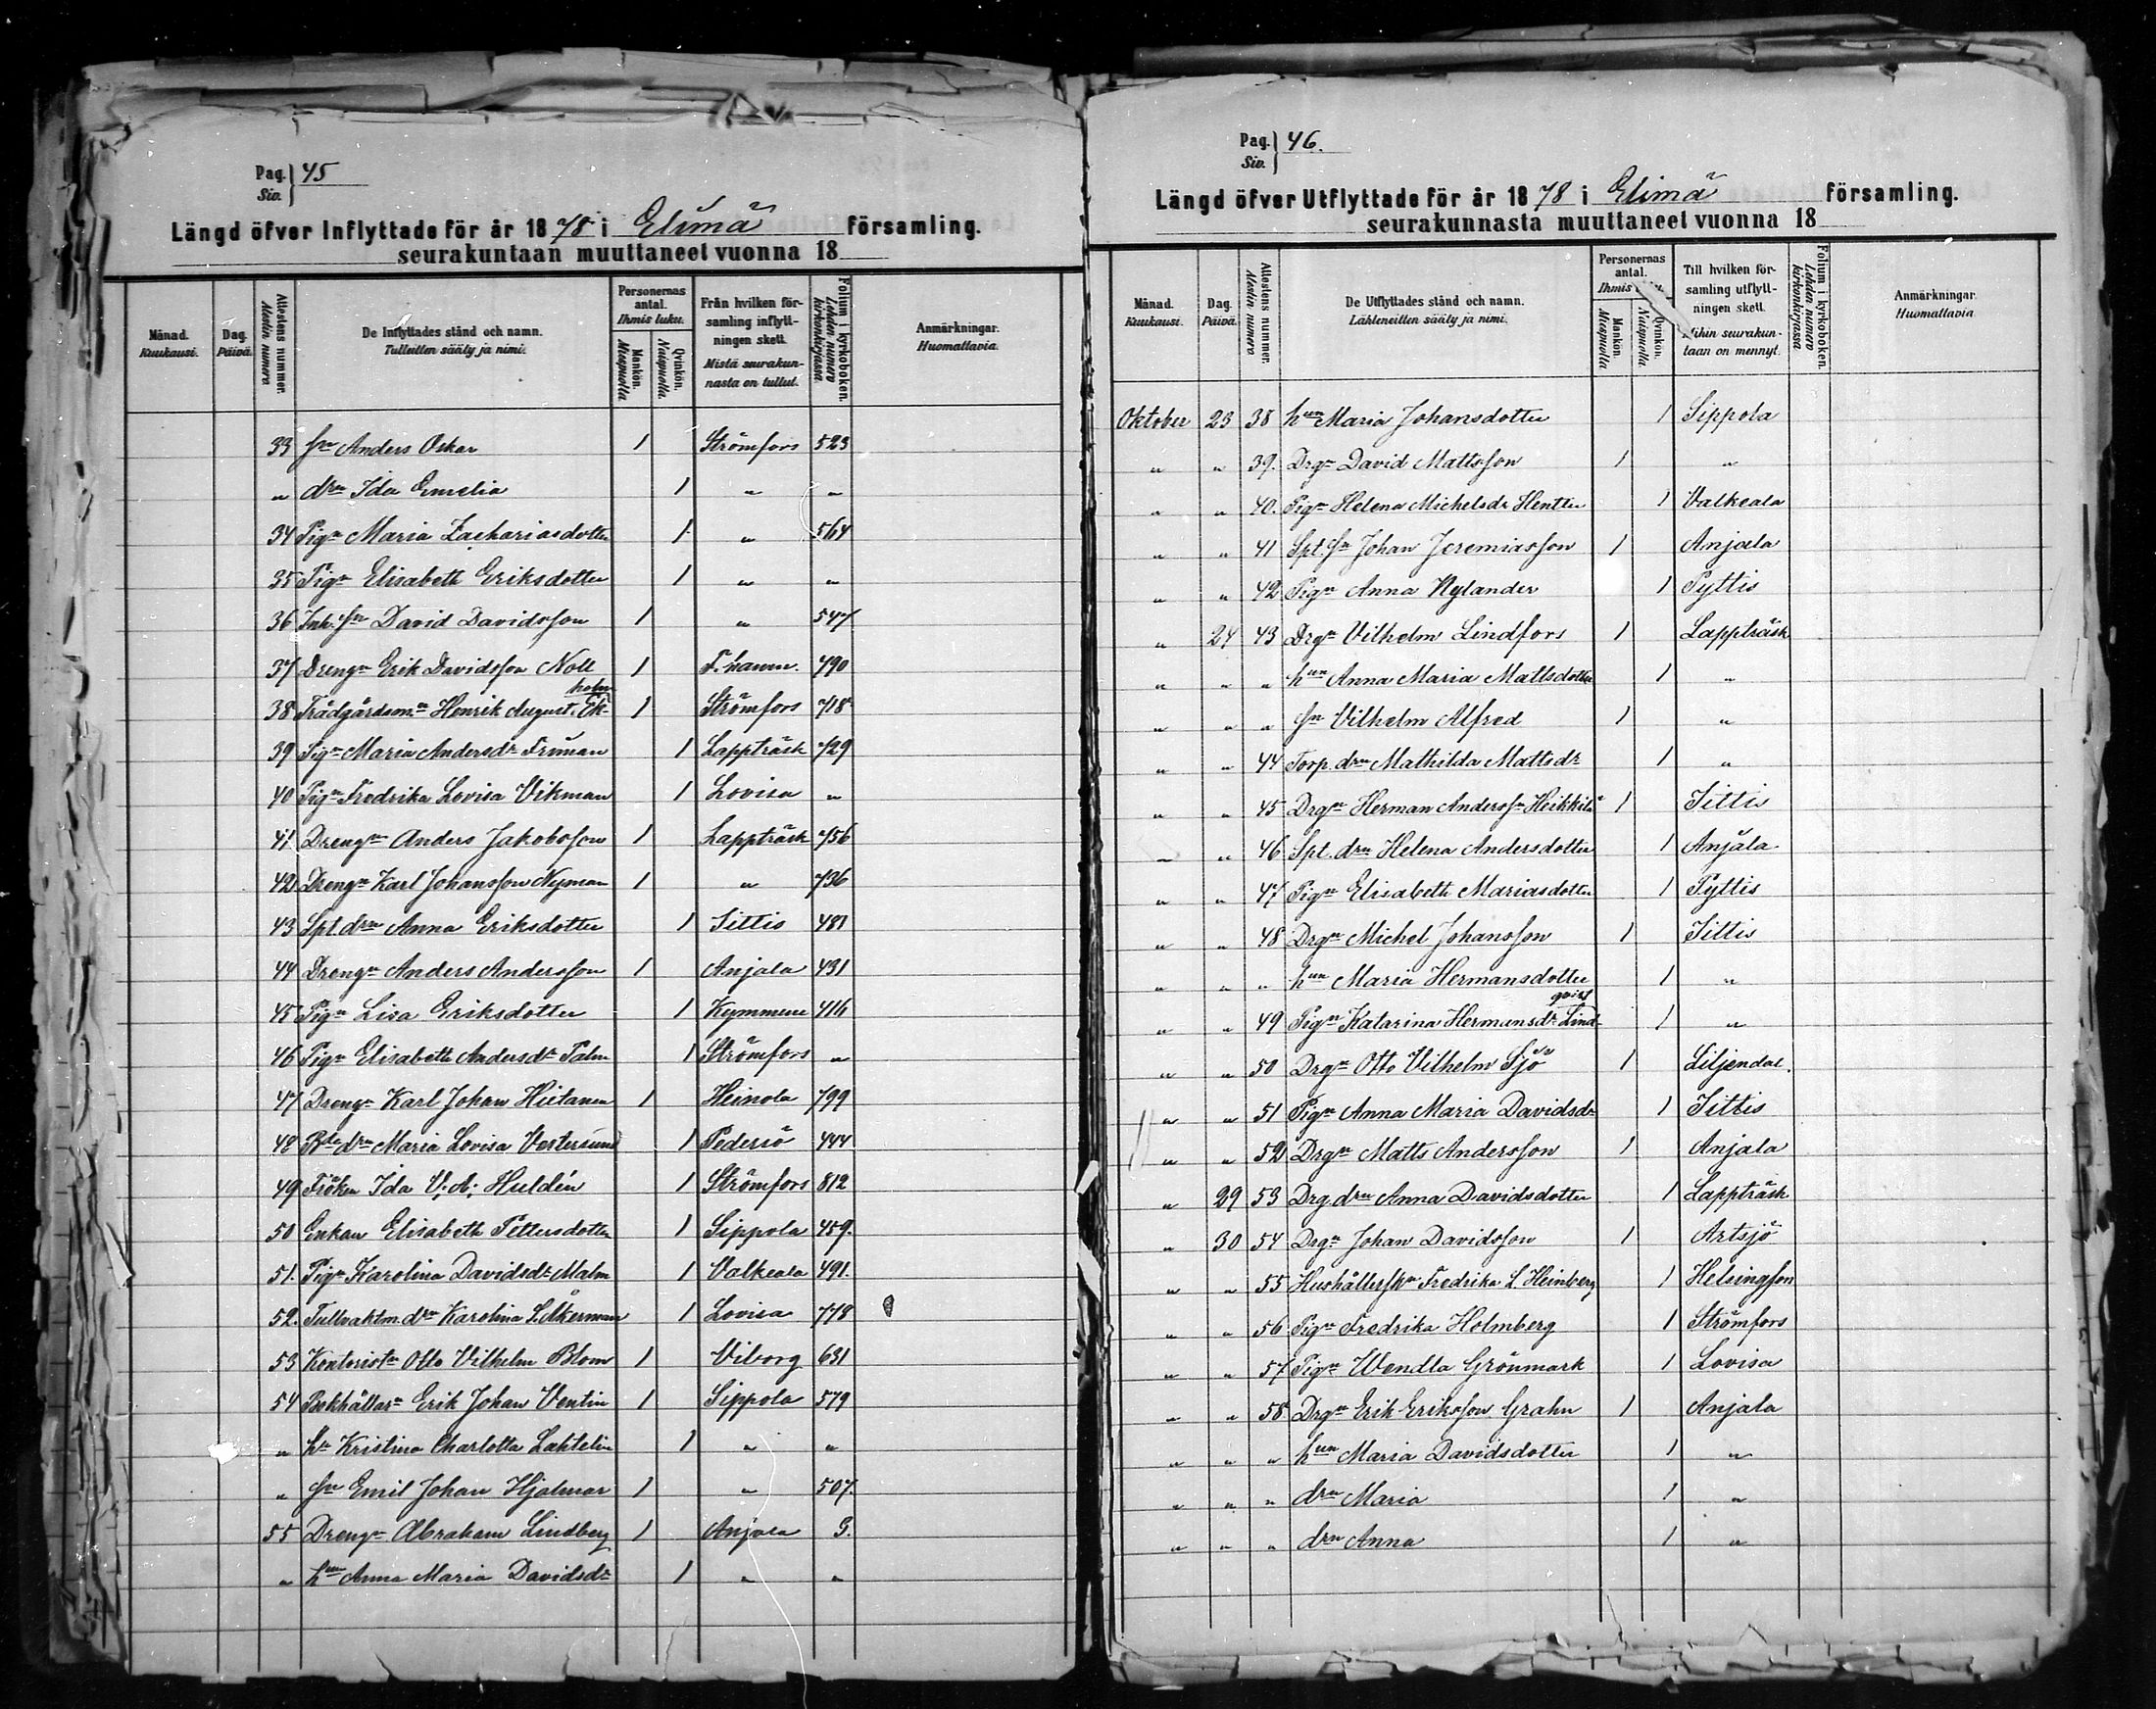 Pag. 45
Siv.
Längd öfver Inflyttade för år 1878 i Elimä församling.
seurakuntaan muuttaneet vuonna 18
Månad. Kuukausi.
Dag. Päivä.
Attestens nummer. Atestin numero
De Inflyttades stånd och namn. Tulleitten sääty ja nimi.
Personernas antal. Ihmis luku.
Mankön. Miespuolta
Qvinkön. Naispuolta.
Från hvilken församling inflyttningen skett. Mistä seurakunnasta on tullut.
Folium i kyrkoboken. Lehden numero kirkonkirjassa
Anmärkningar. Huomattavia.
33 sn Anders Oskar 1 Strömfors 523
" drn Ida Emelia 1 " "
34 Pign Maria Zachariasdotter 1 " 564
35 Pign Elisabeth Eriksdotter 1 " "
36 Inh. sn David Davidsson 1 " 547
37 Drengn Erik Davidsson Noll 1 F.hamn. 490
holm
38 Trädgårdsm.n Henrik August Ek- 1 Strömfors 718
39 Pign Maria Andersdr Friman 1 Lappträsk 729
40 Pign Fredrika Lovisa Vikman 1 Lovisa "
41 Drengn Anders Jakobsson 1 Lappträsk 756
42 Drengn Karl Johansson Nyman 1 " 736
43 Spt. drn Anna Eriksdotter 1 Iittis 481
44 Drengn Anders Andersson 1 Anjala 431
45 Pign Lisa Eriksdotter 1 Kymmene 416
46 Pign Elisabeth Andersdr Palm 1 Strömfors "
47 Drengn Karl Johan Hietanen 1 Heinola 799
48 Bde drn Maria Lovisa Vestersund 1 Pedersö 444
49 Fröken Ida V. A. Huldén 1 Strömfors 812
50 Enkan Elisabeth Pettersdotter 1 Sippola 459.
51. Pign Karolina Davidsdr Malm 1 Valkeala 491.
52. Tullvaktm. drn Karolina S. Åkerman 1 Lovisa 778
53 Kontoristn Otto Vilhelm Blom 1 Viborg 631
54 Bokhållarn Erik Johan Ventin 1 Sippola 579
" hn Kristina Charlotta Lahtelin 1 " "
" sn Emil Johan Hjalmar 1 " 507.
55 Drengn Abraham Lindberg 1 Anjala G.
" hun Anna Maria Davidsdr 1 " "
Pag. 46.
Siv.
Längd öfver Utflyttade för år 1878 i Elimä församling.
seurakunnasta muuttaneet vuonna 18
Månad. Kuukausi.
Dag. Päivä.
Attestens nummer. Atestin numero
De Utflyttades stånd och namn. Lähteneitten sääty ja nimi.
Personernas antal. Ihmis
Mankön. Miespuolta
Qvinkön. Naispuolta.
Till hvilken församling utflyttningen skett. Mihin seurakuntaan on mennyt.
Folium i kyrkoboken. Lehden numero kirkonkirjassa
Anmärkningar. Huomattavia
Oktober 23 38 hun Maria Johansdotter 1 Sippola
" " 39. Drgn David Mattsson 1 "
" " 40. Pign Helena Michelsdr Henttu 1 Valkeala
" " 41 Spt. sn Johan Jeremiasson 1 Anjala
" " 42 Pign Anna Nylander 1 Pyttis
" 24 43 Drgn Vilhelm Lindfors 1 Lappträsk
" " " hun Anna Maria Mattsdotter 1 "
" " " sn Vilhelm Alfred 1 "
" " 44 Torp. drn Mathilda Mattsdr 1 "
" " 45 Drgn Herman Anderssn Heikkilä 1 Iittis
" " 46 Spt. drn Helena Andersdotter 1 Anjala
" " 47 Pign Elisabeth Mariasdotter 1 Pyttis
" " 48 Drgn Michel Johansson 1 Iittis
" " " hun Maria Hermansdotter 1 "
qvist
" " 49 Pign Katarina Hermansdr Lind- 1 "
" " 50 Drgn Otto Vilhelm Sjö 1 Liljendal.
" " 51 Pign Anna Maria Davidsdr 1 Iittis
" " 52 Drgn Matts Andersson 1 Anjala
" 29 53 Drg. drn Anna Davidsdotter 1 Lappträsk
" 30 54 Drgn Johan Davidsson 1 Artsjö
" " 55 Hushållerskn Fredrika L. Heinberg 1 Helsingfors
" " 56 Pign Fredrika Holmberg 1 Strömfors
" " 57 Pign Wendla Grönmark 1 Lovisa
" " 58 Drgn Erik Eriksson Grahn 1 Anjala
" " " hun Maria Davidsdotter 1 "
" " " drn Maria 1 "
" " " drn Anna 1 "